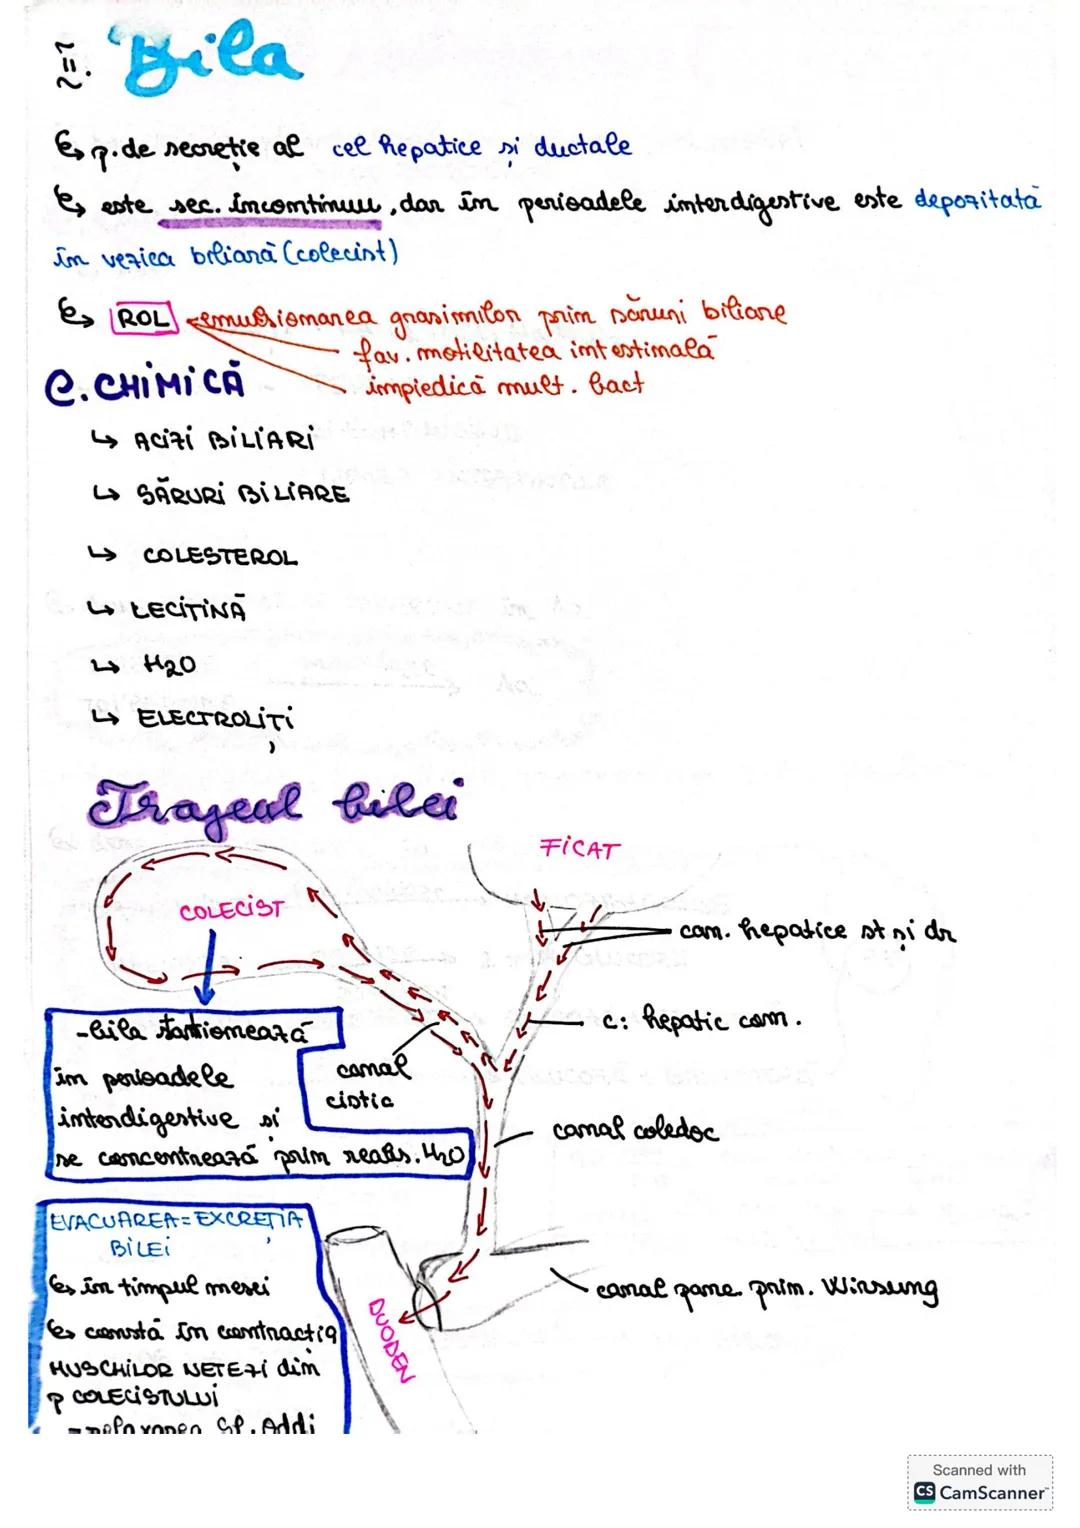 ~II. Bila
p. de secreție al cel hepatice și ductale
este sec. încontinuu, dar în perioadele interdigestive este depozitată
în vezica biliară (colecist)
ROL emulsionarea grăsimilor prin săruri biliare
fav. motilitatea intestinală
împiedică mult. bact
C. CHIMICĂ
↳ ACIZI BILIARI
↳ SĂRURI BILIARE
↳ COLESTEROL
↳ LECITINĂ
↳ H2O
↳ ELECTROLIȚI
Traseul bilei
FICAT
COLECIST
can. hepatice st și dr
c: hepatic com.
canal
cistic
canal coledoc
- bila stationează
în perioadele
interdigestive și
se concentrează prin reabs. H2O
EVACUAREA = EXCREȚIA
BILEI
în timpul mesei
constă în contracția
MUSCHILOR NETEZI din
p COLECISTULUI
- relaxarea Sf. Oddi
DUODEN
canal panc. prin. Wirsung
Scanned with
CS CamScanner